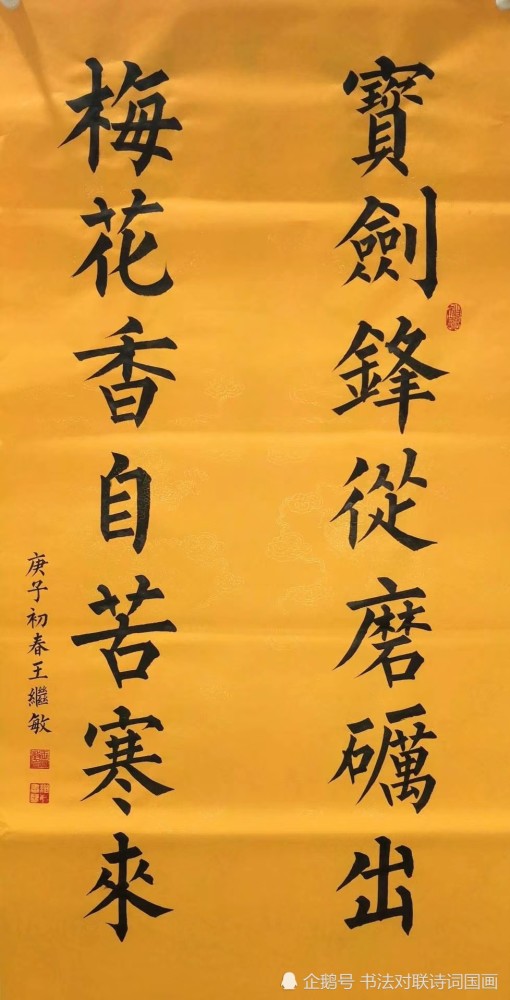 寶劍鋒從磨礪出
梅花香自苦寒來
庚子初春王繼敏
企鹅号 书法对联诗词国画